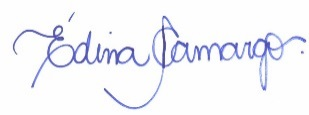 Édina Camargo.